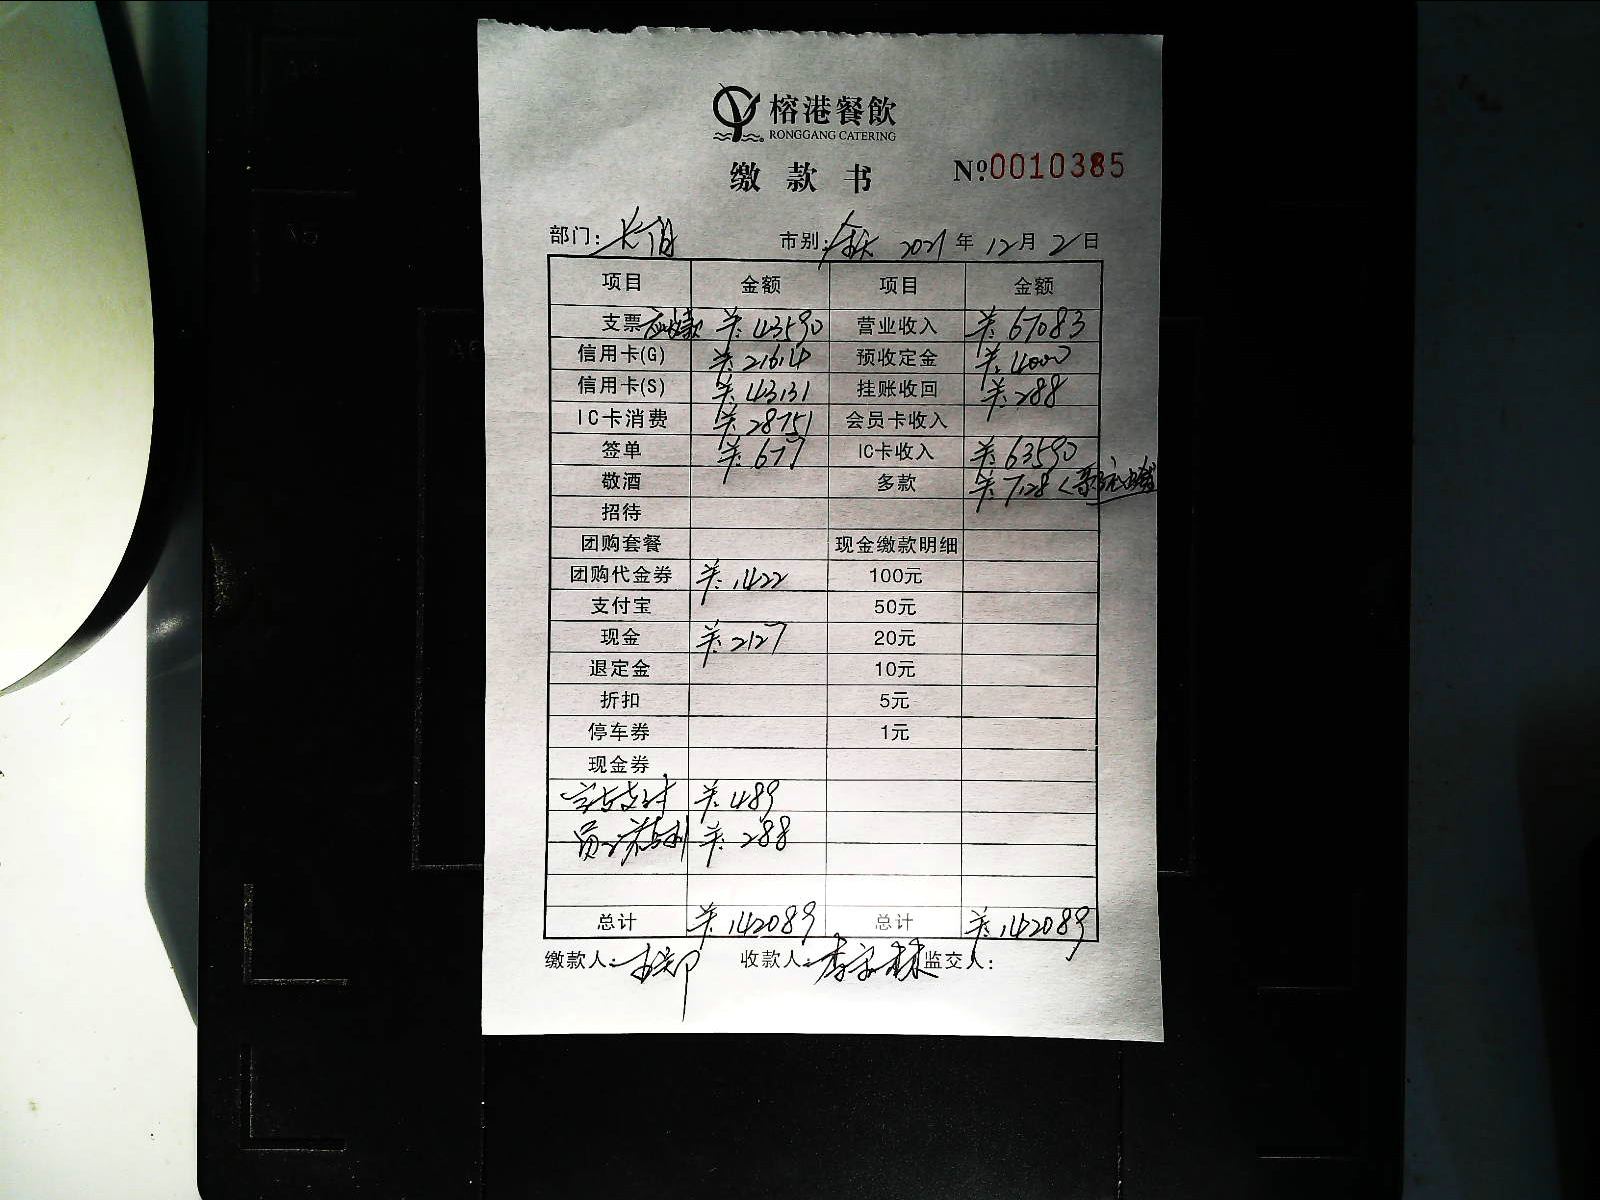 榕港餐飲
RONGGANG CATERING
缴款书 №0010385
部门: 市别: 全天 2021年12月2日
项目 金额 项目 金额
支票 应收款 ¥:43590 营业收入 ¥:67083
信用卡(G) ¥:21614 预收定金 ¥:4000
信用卡(S) ¥:43131 挂账收回 ¥:288
IC卡消费 ¥:28751 会员卡收入
签单 ¥:677 IC卡收入 ¥:63590
敬酒 多款 ¥:7128
招待
团购套餐 现金缴款明细
团购代金券 ¥:1422 100元
支付宝 50元
现金 ¥:2127 20元
退定金 10元
折扣 5元
停车券 1元
现金券
支付 ¥:489
员工 ¥:288
总计 ¥:142089 总计 ¥:142089
缴款人: 收款人: 李 林 监交人: